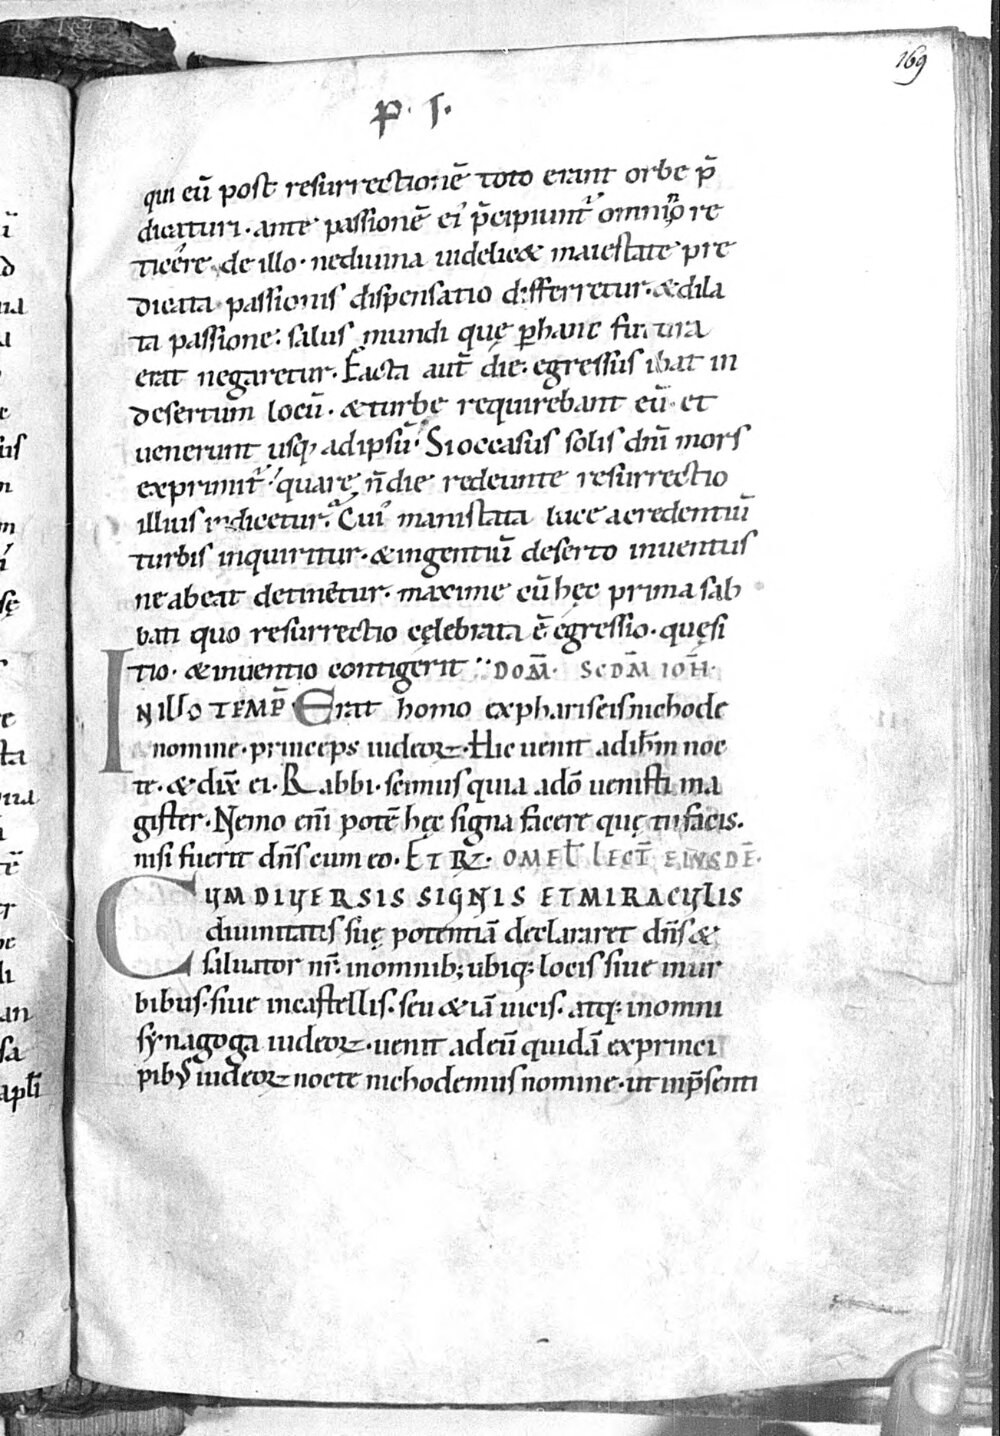 169
P. I.
qui eū post resurrectionē toto erant orbe p̄
dicaturi. ante passionē ei' p̄cipiunt' omnino re
ticere de illo. ne diuina uidelic& maiestate pre
dicata passionis dispensatio differretur. & dila
ta passione: salus mundi quę ꝑ hanc futura
erat negaretur. Facta aut̄ die. egressus ibat in
desertum locū. & turbę requirebant eū. et
uenerunt usq; ad ipsū. Si occasus solis dn̄i mors
exprimit'. quare n̄ die redeunte resurrectio
illius indicetur? Cui' manistata luce a credentiū
turbis inquiritur. & in gentiū deserto inuentus
ne abeat detinetur. maxime cū hęc prima sab
bati quo resurrectio cęlebrata ē. egressio. quęsi
tio. & inuentio contigerit: DOM̄. SCDM̄ IOH̄.
IN ILLO TEMP̄. Erat homo ex phariseis nichode
nomine. princeps iudeoꝝ. Hic uenit ad ih̄m noc
te. & dix̄ ei. Rabbi. scimus quia a dō uenisti ma
gister. Nemo eni̅ potē hęc signa facere quę tu facis.
nisi fuerit dn̄s cum eo. ET RꝜ. OMEL̄ LECT̄ EIUSDĒ.
CUM DIUERSIS SIGNIS ET MIRACULIS
diuinitatis suę potentiā declararet dn̄s &
saluator nr̄. in omnib; ubiq; locis siue in ur
bibus. siue in castellis. seu & iā uicis. atq; in omni
synagoga iudeoꝝ. uenit ad eū quidā ex princi
pib; iudeoꝝ nocte nichodemus nomine. ut in p̄senti